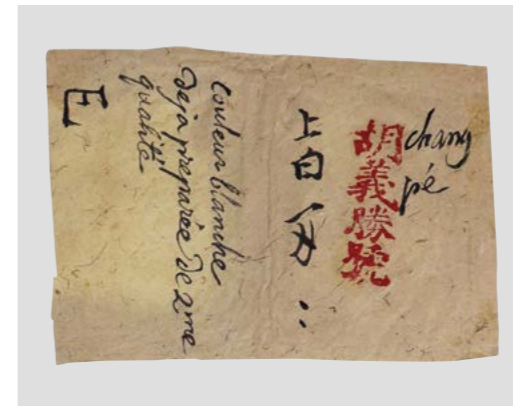 chang
pé
胡義勝號
上白
couleur blanche
deja preparée de 2me
qualité
E